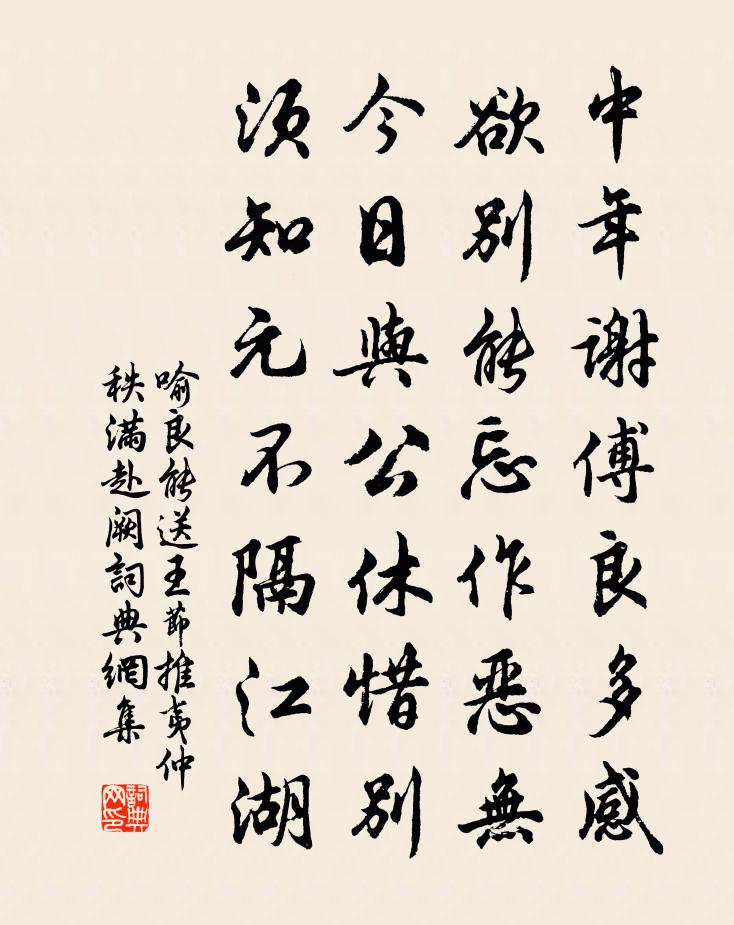 中年謝傅良多感
欲別能忘作惡無
今日與公休惜別
須知元不隔江湖
喻良能送王節推夷仲
秩滿赴闕詞典網集
詞典网印